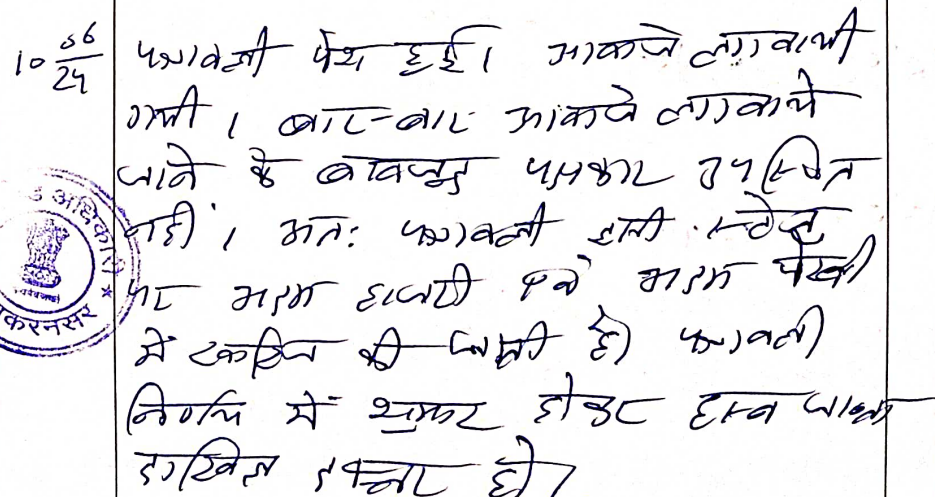 10 06/24 पत्रावली पेश हुई। आवाजे लगवायी
गयी। बार-बार आवाजे लगवाये
जाने के बावजूद पक्षकार उपस्थित
नहीं। अतः पत्रावली इसी स्टेज
पर अदम हाजरी एवं अदम पेरवी
में खारिज की जाती है। पत्रावली
निर्णय में शुमार होकर
दाखिल दफ्तर हो।
ड अधिकारी
करनसर